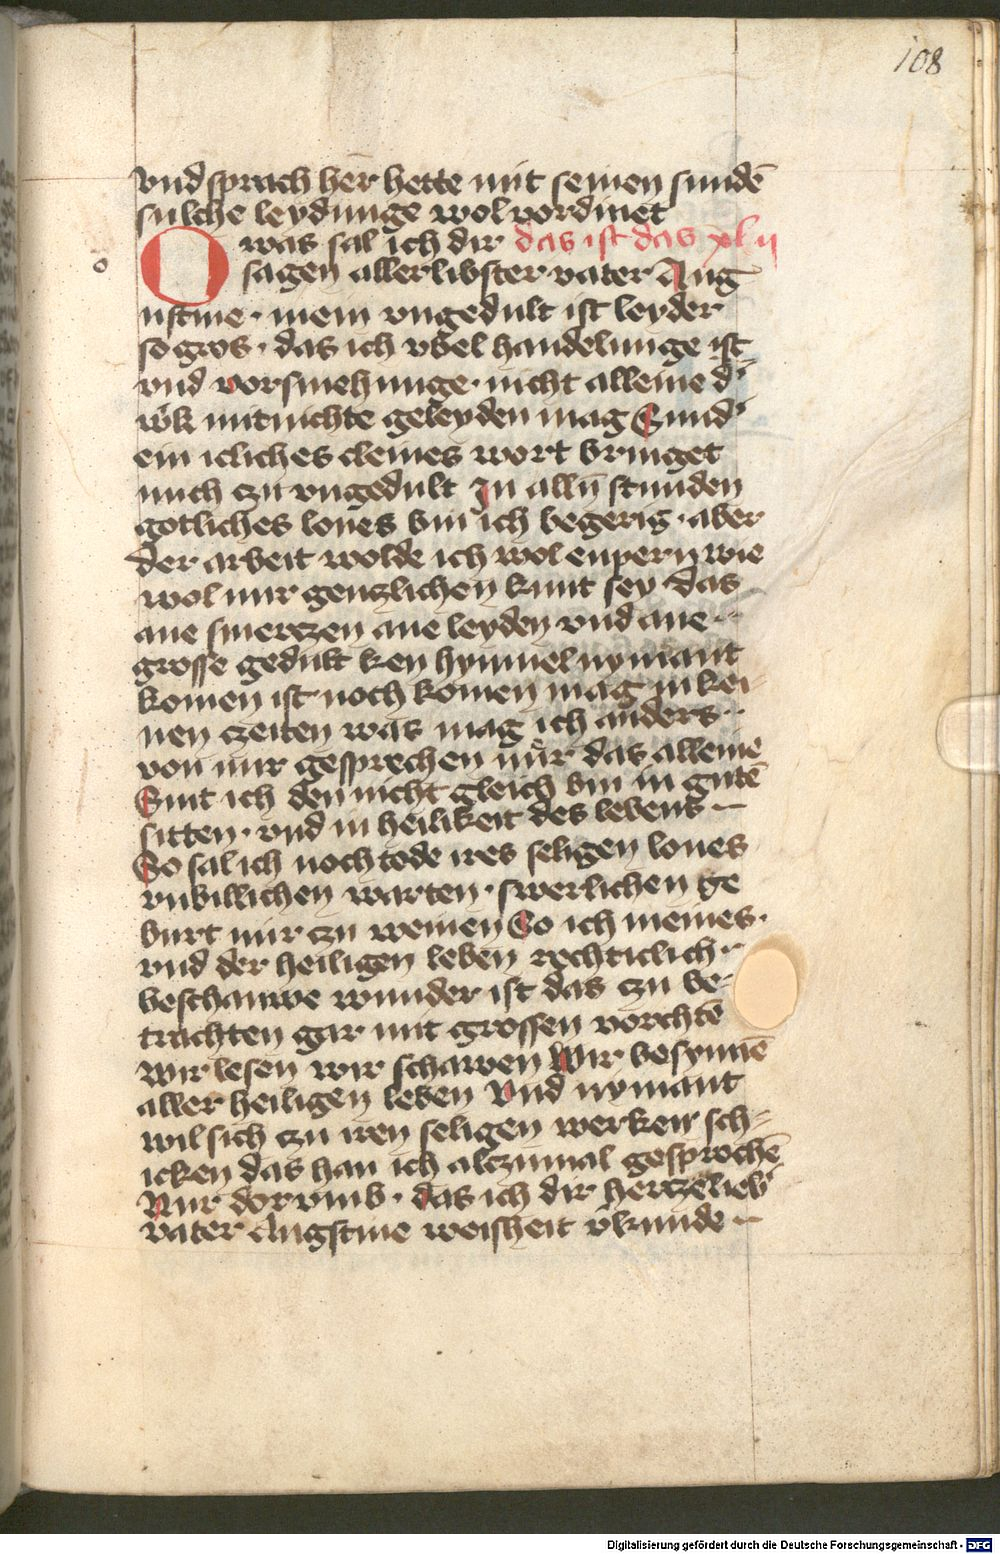 108
vnd sprach her hette mit seinen sundē
sulche leydunge wol vordinet
O was sal ich dir das ist das xlii
o
sagen allerlibster vater Aug
ustine · mein vngedult ist leyder
so gros · das ich vbel handelunge ist
vnd vorsmehunge · nicht alleine d'
w̄k mitnichte geleyden mag Sund'
ein icliches cleines wort bringet
mich czu vngedult In allñ stunden
gotliches lones bin ich begerig · aber
der arbeit wolde ich wol enpern wie
wol mir genczlichen kunt sey das
ane smerczen ane leyden vnd ane
grosse gedult ken hymmel nymant
komen ist noch komen mag in kei-
nen czeiten was mag ich anders
von mir gesprechen nůr das alleine
Sint ich den nicht gleich bin in gutē
sitten · vnd in heilikeit des lebens
So sal ich noch tode ires seligen lones
vnbillichen warten · swerlichen ge
burt mir czu weinen So ich meines ·
vnd der heiligen leben rechticlich
beschauwe wunder ist das czu be-
trachten gar mit grossen vorchtē
Wir lesen wir schawen Wir besynnē
aller heiligen leben Vnd nymant
wil sich czu iren seligen werken sch-
icken das han ich alczumal gesprochē
Nur dorvmb · das ich dir hertzelieb'
vater Augstine weisheit v̄kunde
Digitalisierung gefördert durch die Deutsche Forschungsgemeinschaft - DFG